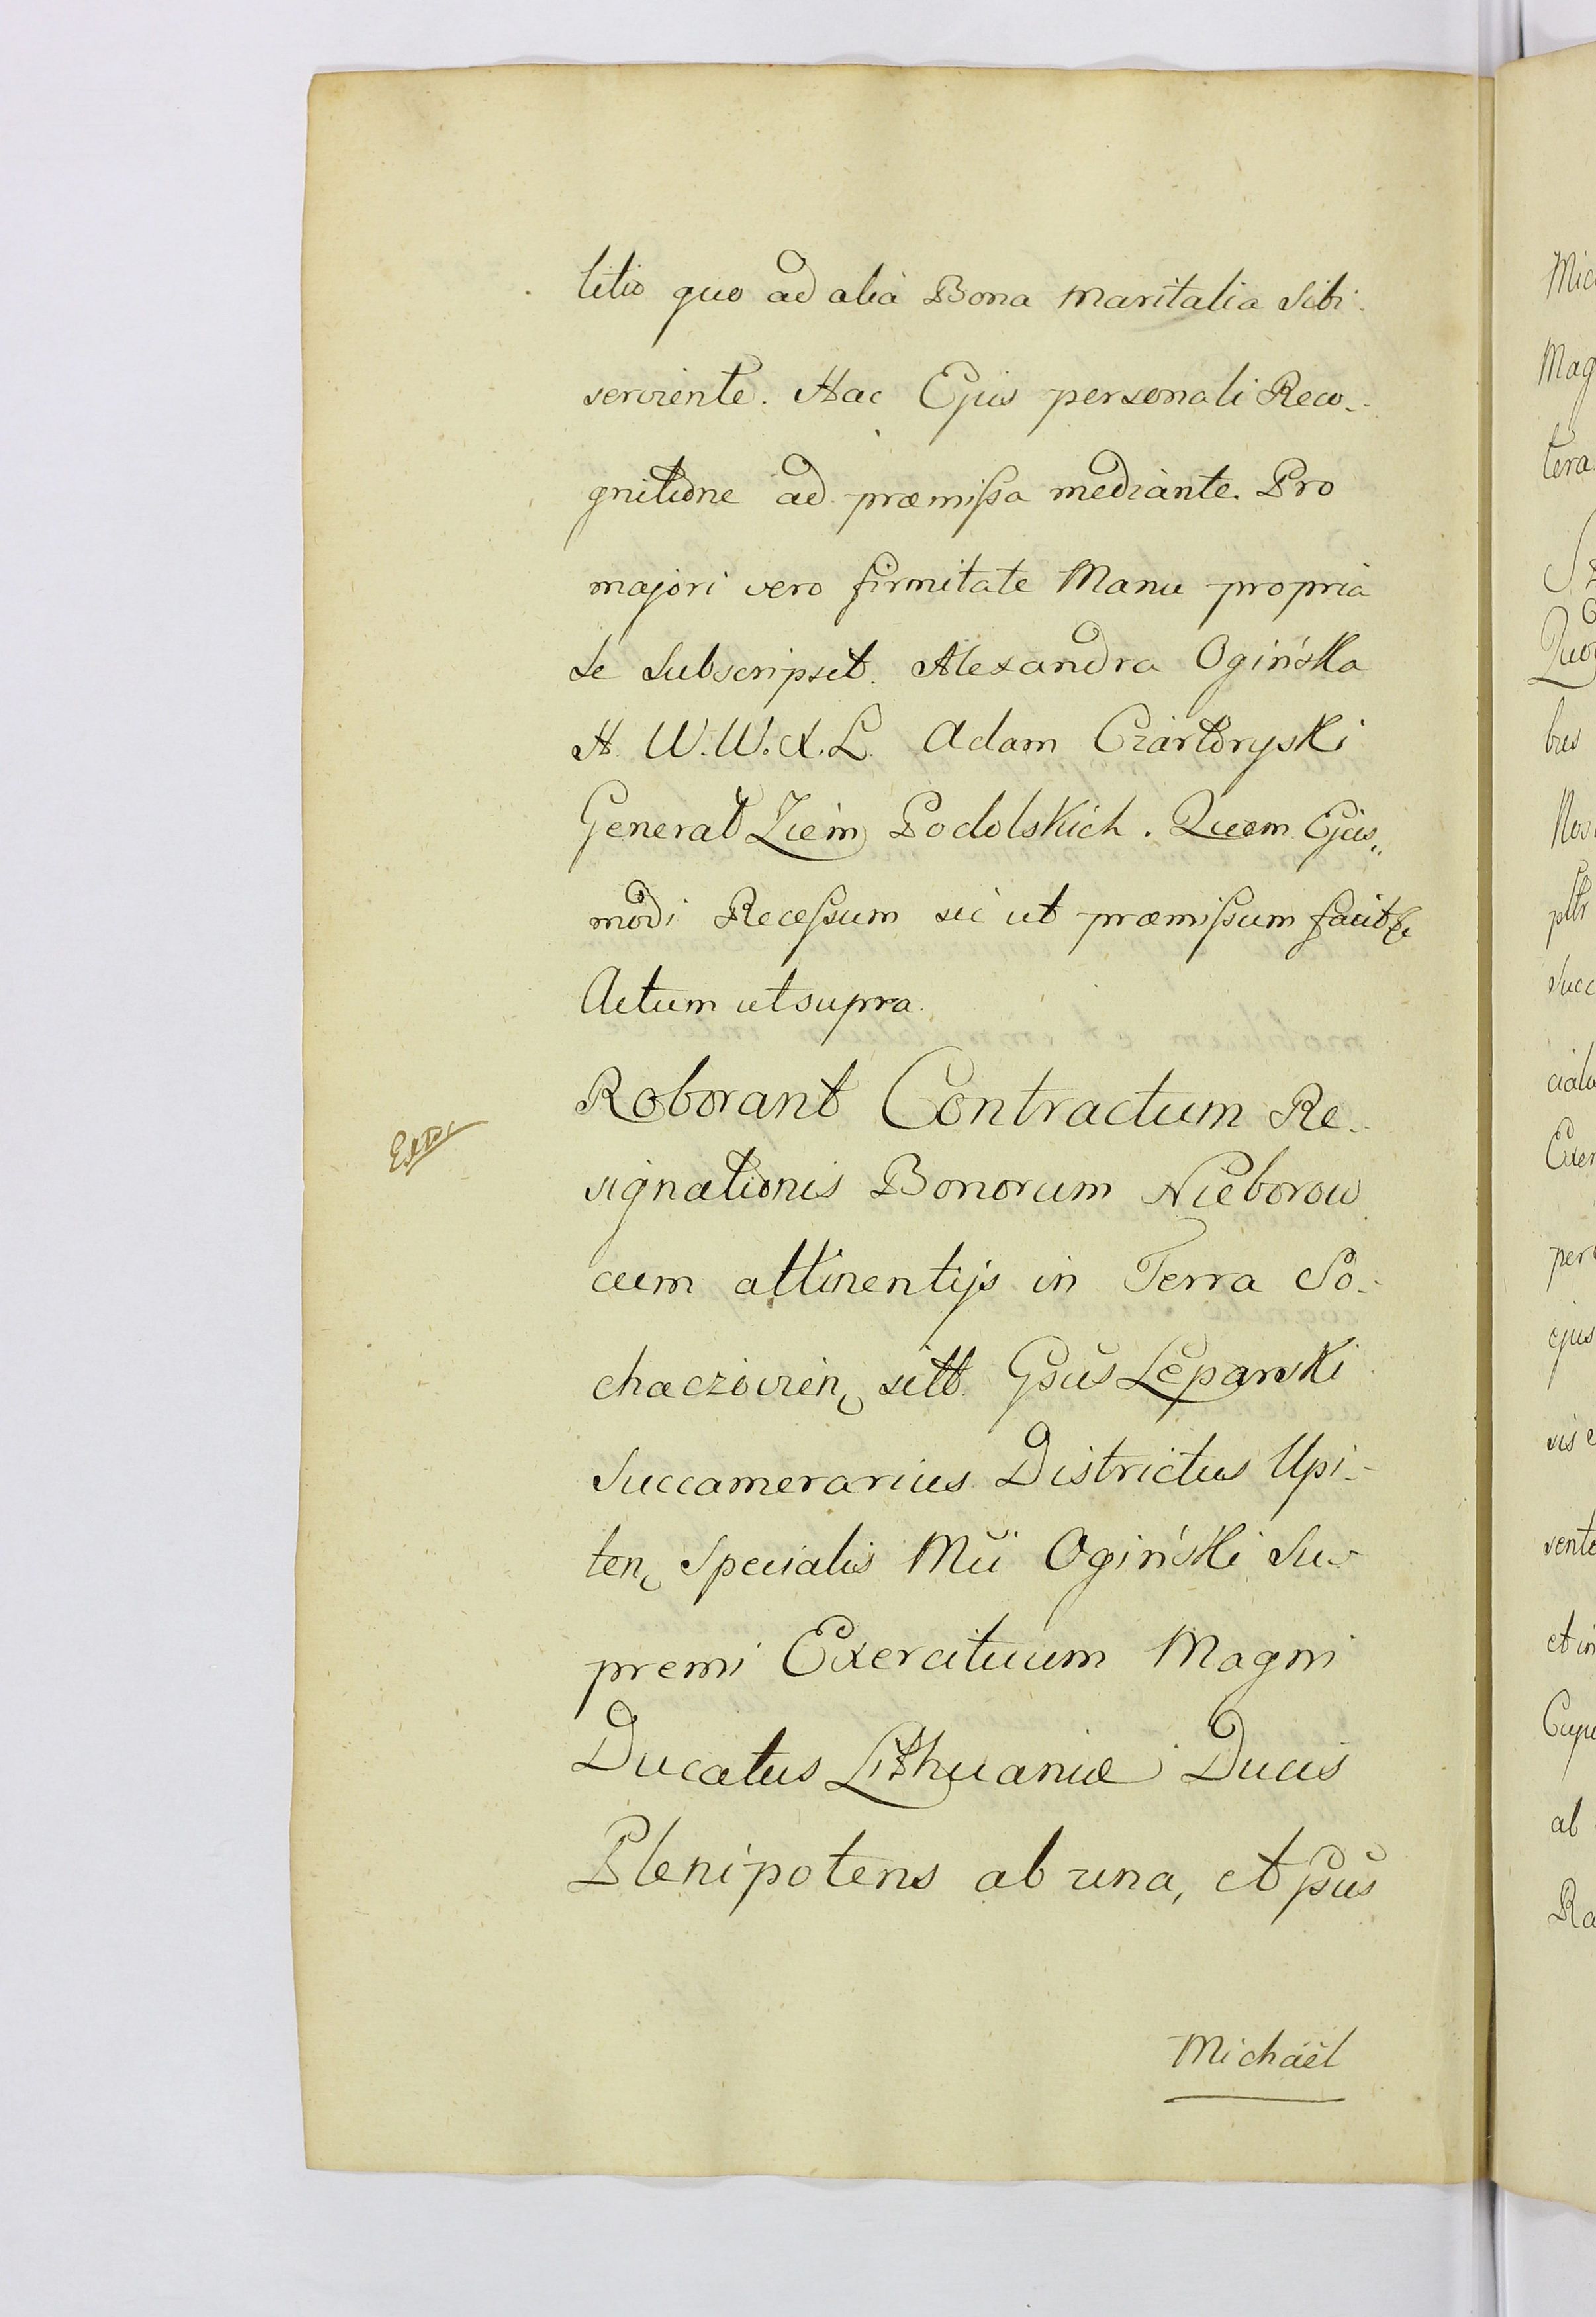 litio quo ad alia Bona Maritalia Sibi
serviente. Hac Ejus personali Reco-
gnitione ad præmissa mediante. Pro
majori vero firmitate Manu propria
Se Subscripsit. Alexandra Ogińska
H. W. W. X. L. Adam Czartoryski
Generał Ziem Podolskich. Quem Ejus„
modi Recessum sic ut præmissum facit &
Actum ut supra.
Roborant Contractum Re-
signationis Bonorum Nieborow
cum attinentijs in Terra So-
chaczovien sitt. Gsus Leparski
Succamerarius Districtus Upi-
ten Specialis Mci Ogiński Su-
premi Exercituum Magni
Ducatus Lithuaniæ Ducis
Plenipotens ab una, et
Michaël